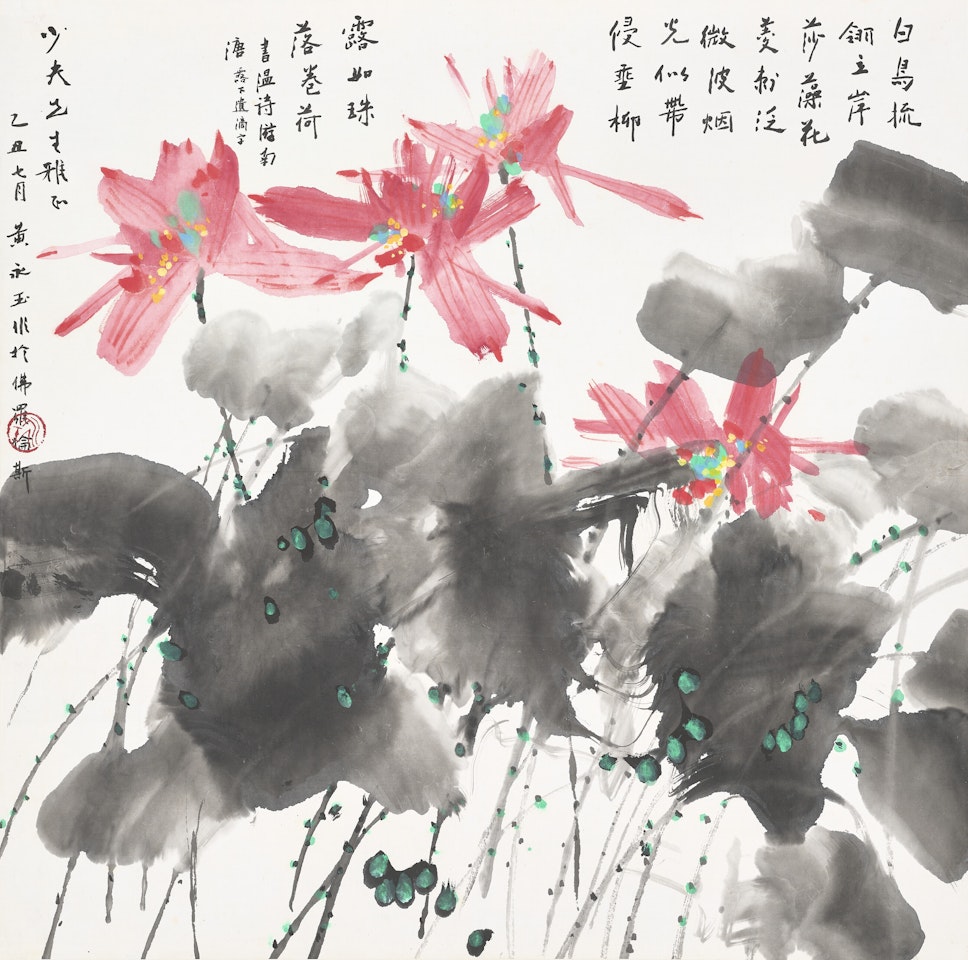 白鳥梳
翎立岸
莎藻花
菱刺泛
微波烟
光似帶
侵垂柳
露如珠
落卷荷
書温詩游南
塘 露下遺滴字
少夫先生雅正
乙丑七月 黃永玉作於佛羅倫斯